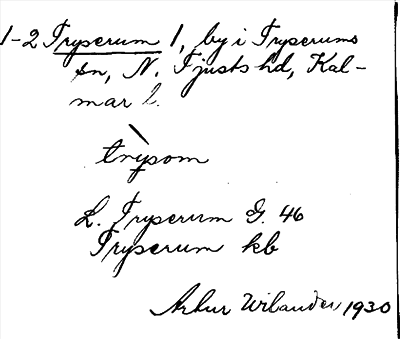 1-2 Tryserum 1, by i Tryserums
sn, N. Tjusts hd, Kal-
mar l.
trỳsom
L. Tryserum G. 46
Tryserum kb
Artur Wilander 1930